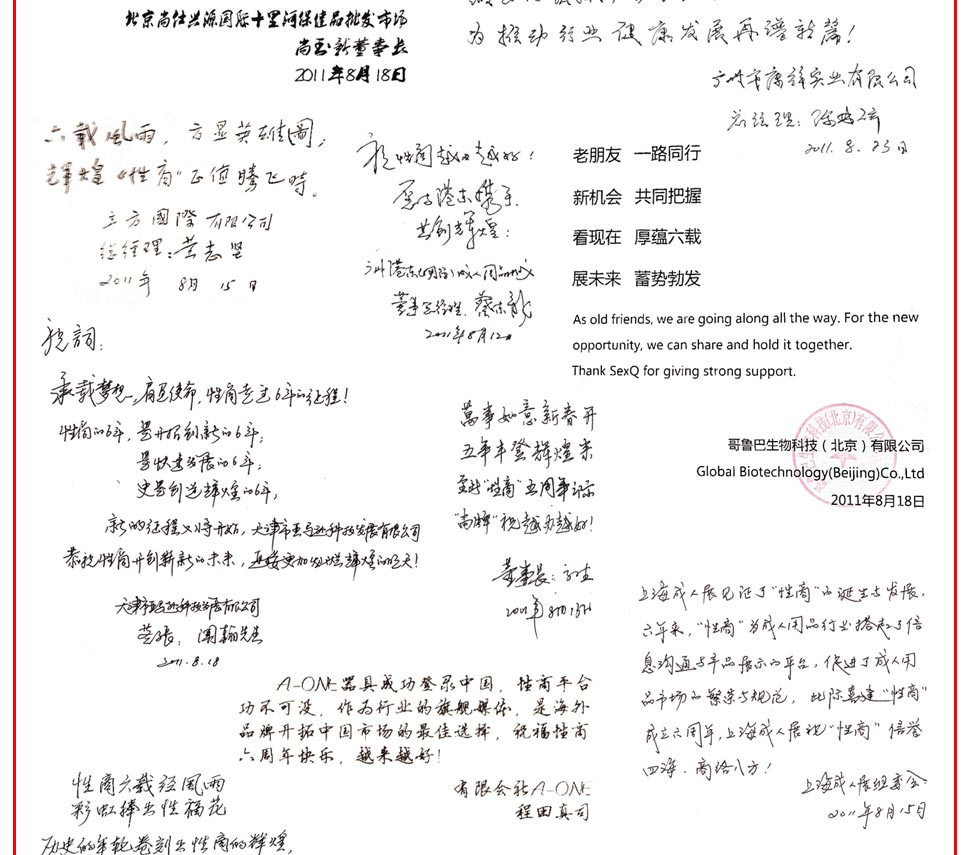 北京尚仕兴源国际十里河保健品批发市场
尚玉新董事长
2011年8月18日
为推动行业健康发展再谱新篇！
广州市康祥实业有限公司
总经理：
2011.8.23日
六载风雨，方显英雄图；
辉煌《性商》正值腾飞时。
立方國際有限公司
总经理：
2011年 8月 15日
祝性商越办越好！
愿与港东携手
共创辉煌：
董事总经理：蔡东龙
2011年8月12日
老朋友 一路同行
新机会 共同把握
看现在 厚蕴六载
展未来 蓄势勃发
As old friends, we are going along all the way. For the new
opportunity, we can share and hold it together.
Thank SexQ for giving strong support.
哥鲁巴生物科技（北京）有限公司
Global Biotechnology(Beijing)Co.,Ltd
2011年8月18日
祝詞：
承载梦想，肩负使命，性商走过6年的征程！
性商的6年，是开拓创新的6年；
是快速发展的6年；
更是创造辉煌的6年，
新的征程又将开始，天津市亚当夏娃科技发展有限公司
恭祝性商开创新的未来，
2011.8.18
萬事如意新春开
五年丰登辉煌来
"性商"五周年
"尚牌"祝越办越好！
董事长：
A-ONE器具成功登录中国，性商平台
功不可没，作为行业的旗舰媒体，是海外
品牌开拓中国市场的最佳选择，祝福性商
六周年快乐，越来越好！
有限会社A-ONE
程田真司
上海成人展见证了"性商"的诞生与发展，
六年来，"性商"为成人用品行业搭起了信
息沟通与产品展示的平台，促进了成人用
品市场的繁荣与规范，此际喜逢"性商"
成立六周年，上海成人展祝"性商"信誉
四海，商络八方！
上海成人展组委会
2011年8月15日
性商六载经風雨
彩虹捧出性福花
历史的年轮卷刻出性商的辉煌，